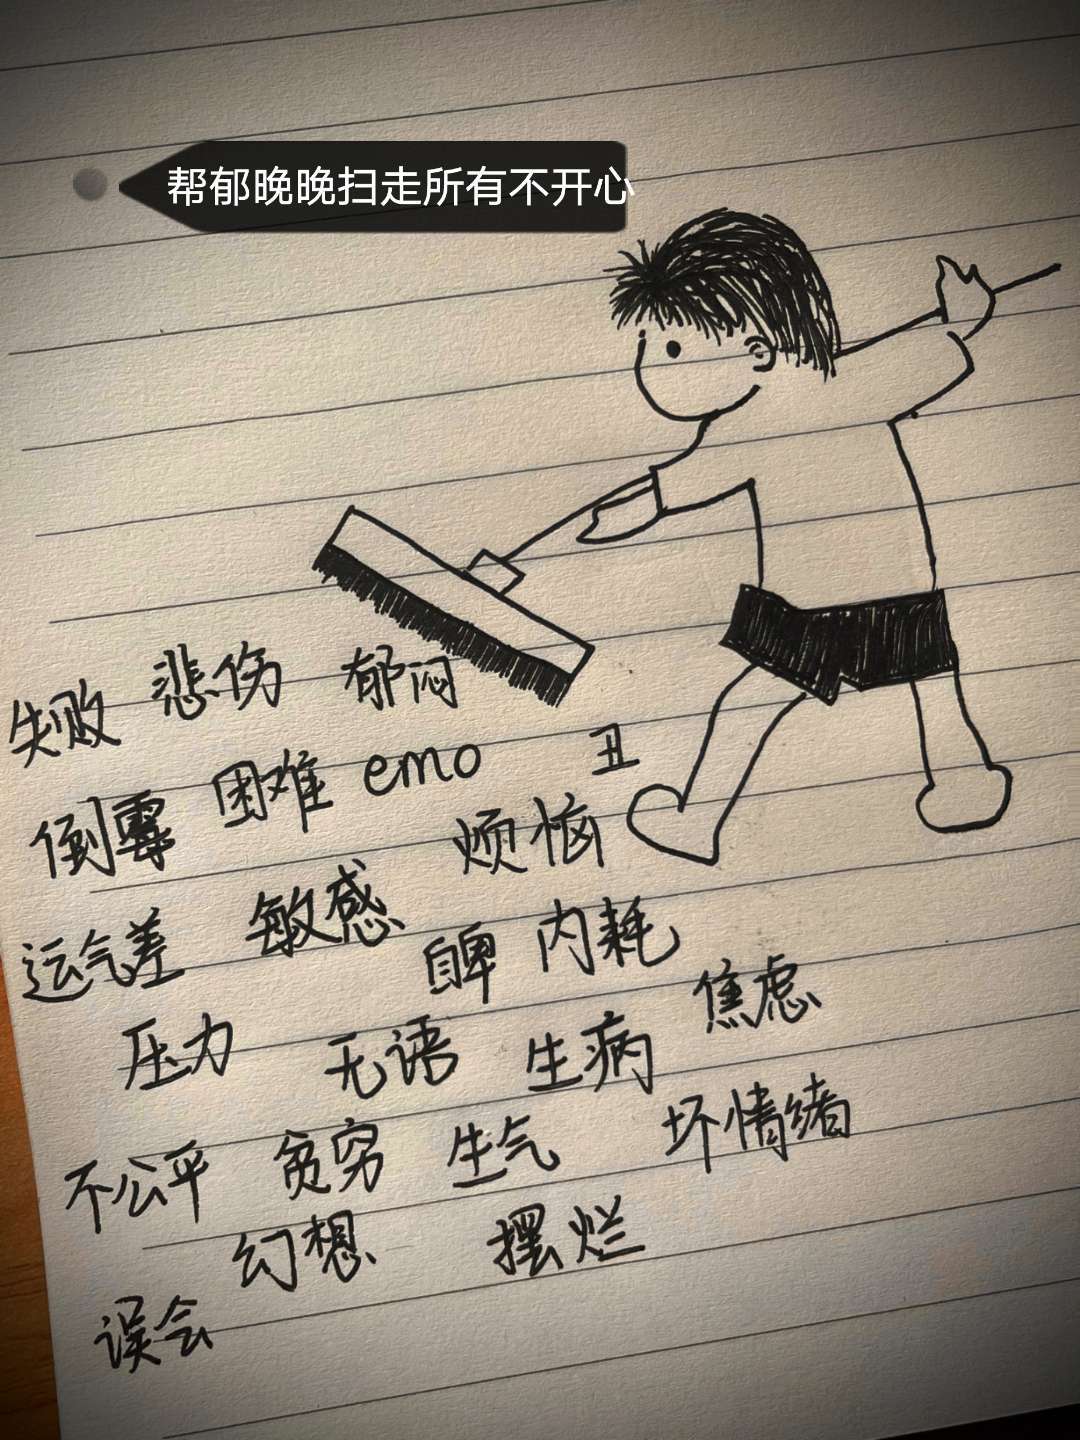 帮郁晚晚扫走所有不开心
失败 悲伤 郁闷
倒霉 困难 emo 丑
烦恼
运气差 敏感 自卑 内耗
压力 无语 生病 焦虑
不公平 贫穷 生气 坏情绪
幻想 摆烂
误会